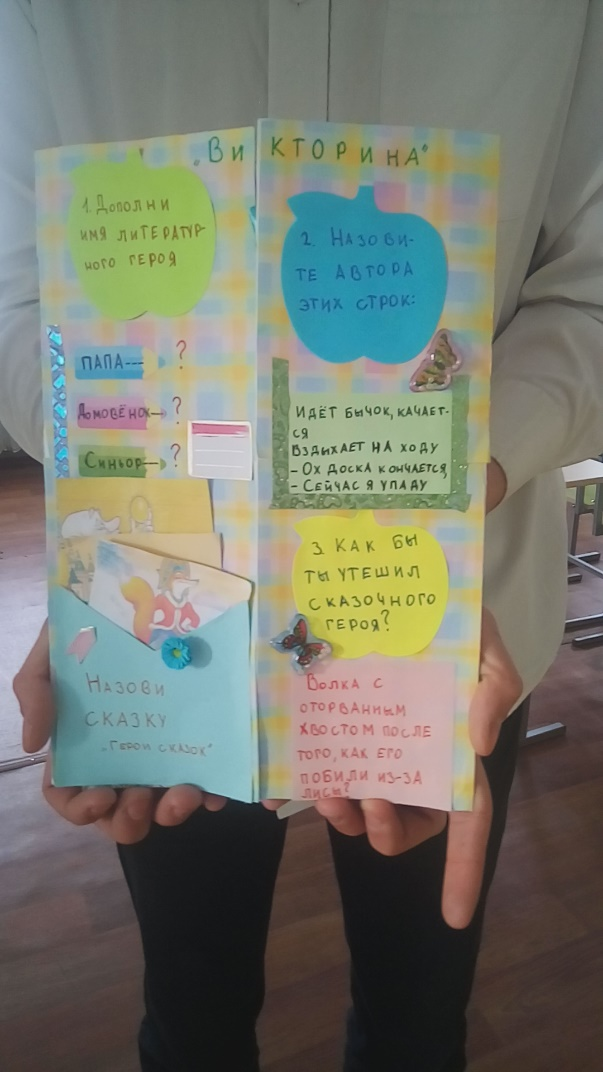 „Викторина“
1. Дополни
имя литератур-
ного героя
папа--- ?
Домовёнок— ?
Синьор— ?
Назови
сказку
„Герои сказок“
2. Назови-
те автора
этих строк:
Идёт бычок, качает-
ся
Вздыхает на ходу
- Ох доска кончается,
- Сейчас я упаду
3. Как бы
ты утешил
сказочного
героя?
Волка с
оторванным
хвостом после
того, как его
побили из-за
лисы?